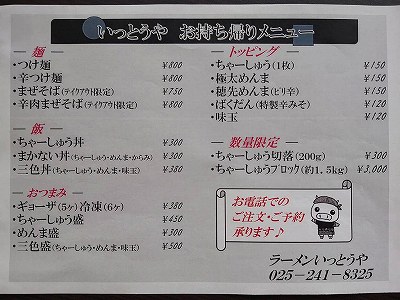 いっとうや お持ち帰りメニュー
― 麺 ―
・つけ麺 ¥800
・辛つけ麺 ¥800
・まぜそば(テイクアウト限定) ¥750
・辛肉まぜそば(テイクアウト限定) ¥800
― 飯 ―
・ちゃーしゅう丼 ¥300
・まかない丼(ちゃーしゅう・めんま・からみ) ¥300
・三色丼(ちゃーしゅう・めんま・味玉) ¥380
― おつまみ ―
・ギョーザ(5ヶ)冷凍(6ヶ) ¥380
・ちゃーしゅう盛 ¥450
・めんま盛 ¥300
・三色盛(ちゃーしゅう・めんま・味玉) ¥500
― トッピング ―
・ちゃーしゅう(1枚) ¥150
・極太めんま ¥150
・穂先めんま(ピリ辛) ¥150
・ばくだん(特製辛みそ) ¥120
・味玉 ¥120
― 数量限定 ―
・ちゃーしゅう切落(200g) ¥300
・ちゃーしゅうブロック(約1.5kg) ¥3,000
お電話での
ご注文・ご予約
承ります♪
ラーメンいっとうや
025-241-8325